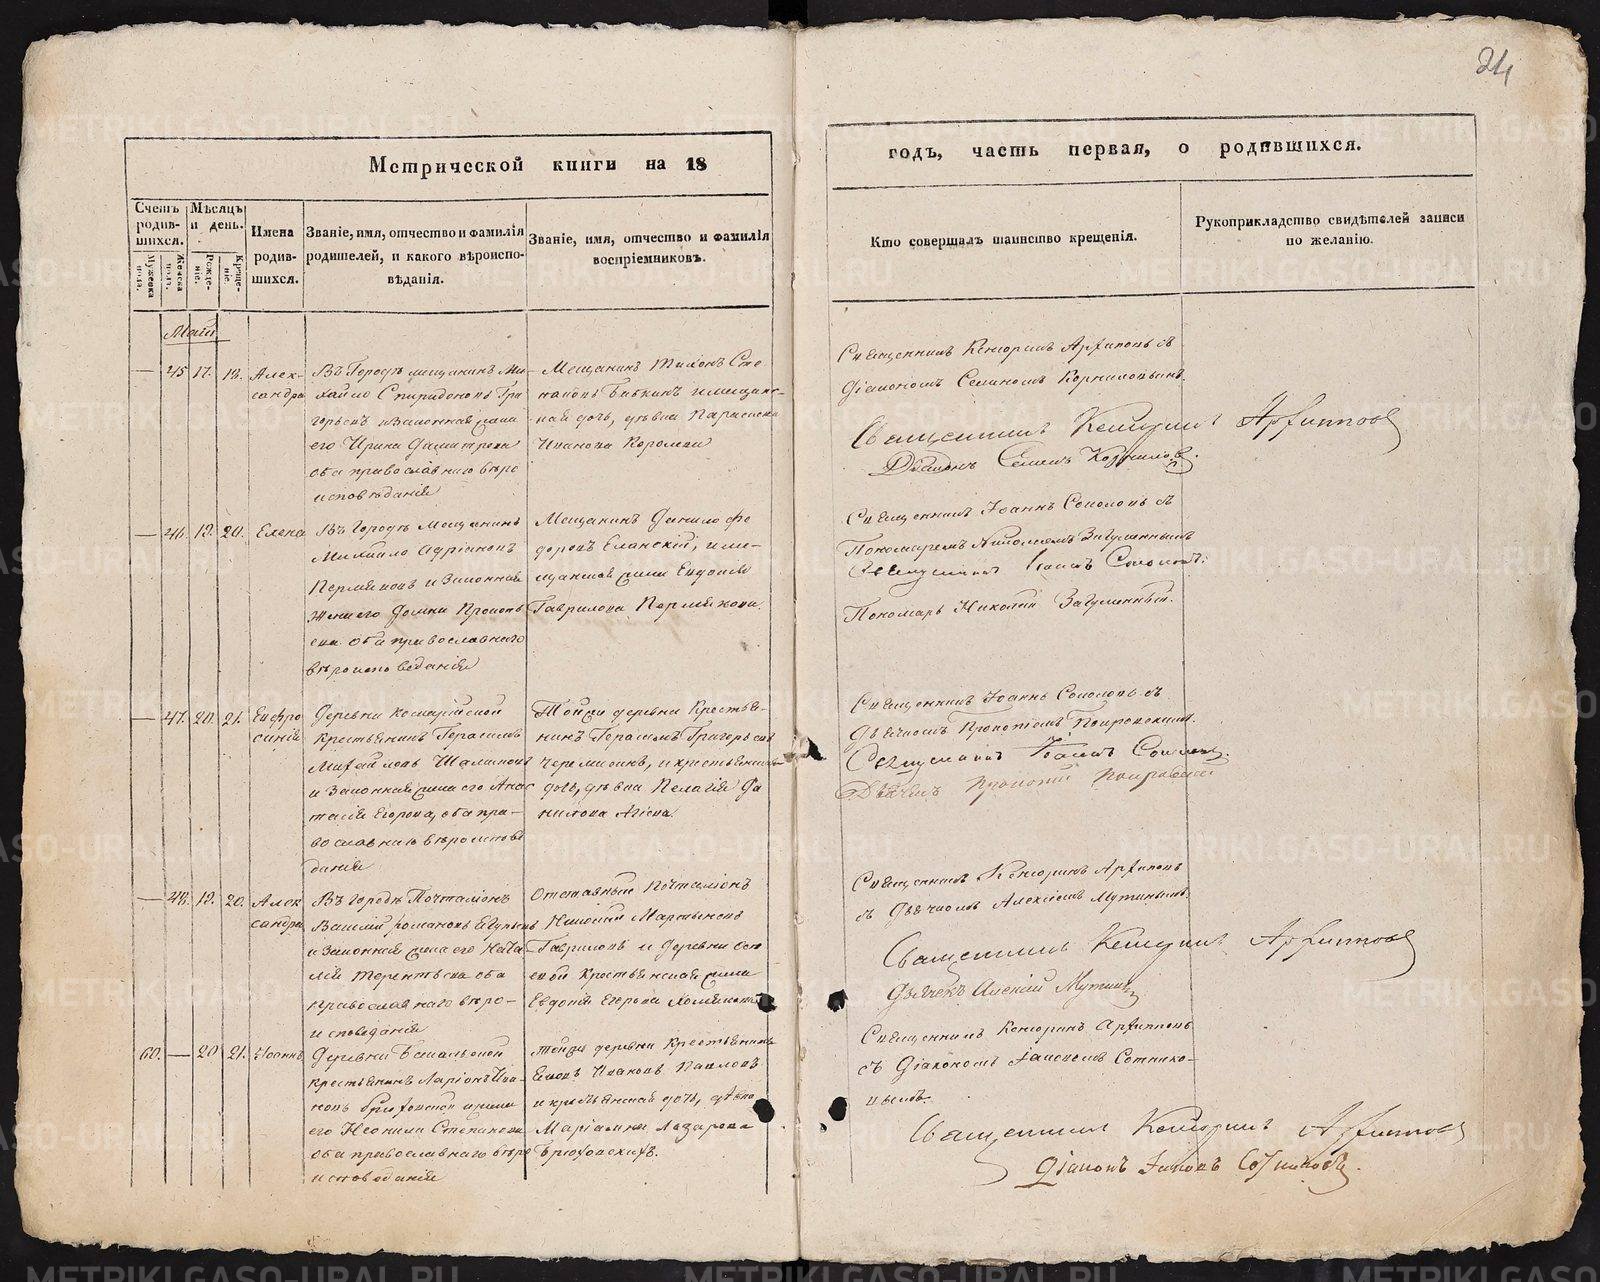 24
Метрической книги на 18
годъ, часть первая, о родившихся.
Счетъ родив-
шихся.
Мѣсяцъ
и день.
Имена
родив-
шихся.
Званіе, имя, отчество и фамилія
родителей, и какого вѣроиспо-
вѣданія.
Званіе, имя, отчество и фамилія
воспріемниковъ.
Кто совершалъ таинство крещенія.
Рукоприкладство свидѣтелей записи
по желанію.
Мужеска
пола.
Женска
пола.
Рожде-
ніе.
Креще-
ніе.
Май
— 45 17. 18. Алек-
сандра
Въ Городѣ мещанинъ Ми-
хайло Спиридоновъ Гри
горьевъ и законная жена
его Ирина Димитрева
оба православнаго вѣро
исповѣданія
Мещанинъ Тихонъ Сте
пановъ Бабкинъ и мещанс-
кая дочь, дѣвка Параскева
Иванова
Священникъ Кенсоринъ Архиповъ съ
Діакономъ Семеномъ Корниловымъ.
Священникъ Кенсоринъ Архиповъ
Діаконъ Семенъ Корниловъ.
— 46. 19. 20. Елена
Въ Городѣ Мещанинъ
Михайло Адріановъ
Пермяковъ и Законная
Жена его Домна Прокопь
ева оба православнаго
вѣроисповеданія
Мещанинъ Данило Фе
доровъ Еланскій, и ме-
щанская жена Евдокія
Гаврилова Пермякова.
Священникъ Іоаннъ Соколовъ съ
Пономаремъ Николаемъ Загуменнымъ
Священникъ Іоаннъ Соколовъ.
Пономарь Николай Загуменный.
— 47. 20. 21. Евфро
синія
Деревни
крестьянинъ Герасимъ
Михайловъ
и Законная жена его Анас
тасія Егорова, оба пра-
вославнаго вѣроисповѣ
данія
Тойже деревни Крестья-
нинъ Герасимъ Григорьевъ
и крестьянская
дочь, дѣвка Пелагія Да
нилова
Священникъ Іоаннъ Соколовъ съ
Дьячкомъ Прокопіемъ Покровскимъ.
Священникъ Іоаннъ Соколовъ.
Дьячекъ Прокопій Покровскій
— 48. 19. 20. Алек
сандра
Въ городѣ Почталіонъ
Василій Романовъ
и Законная жена его Ната
лія Терентьева оба
православнаго вѣро-
исповеданія
Отставный Почталіонъ
Николай Мартыновъ
Гавриловъ и Деревни
Крестьянская жена
Евдокія Егорова
Священникъ Кенсоринъ Архиповъ
съ Дьячкомъ Алексіемъ Мутинымъ
Священникъ Кенсоринъ Архиповъ
Дьячекъ Алексій Мутинъ
60. — 20 21. Іоаннъ
Деревни
крестьянинъ Ларіонъ Ива-
новъ и жена
его Неонила Степанова
оба православнаго вѣро
исповеданія
Тойже деревни Крестьянинъ
Ивановъ Павловъ
и крестьянская дочь, дѣвка
Маріамна Лазарева
Брюховскихъ.
Священникъ Кенсоринъ Архиповъ
съ Діакономъ Іаковомъ Сотнико-
вымъ.
Священникъ Кенсоринъ Архиповъ
Діаконъ Іаковъ Сотниковъ.
METRIKI.GASO-URAL.RU